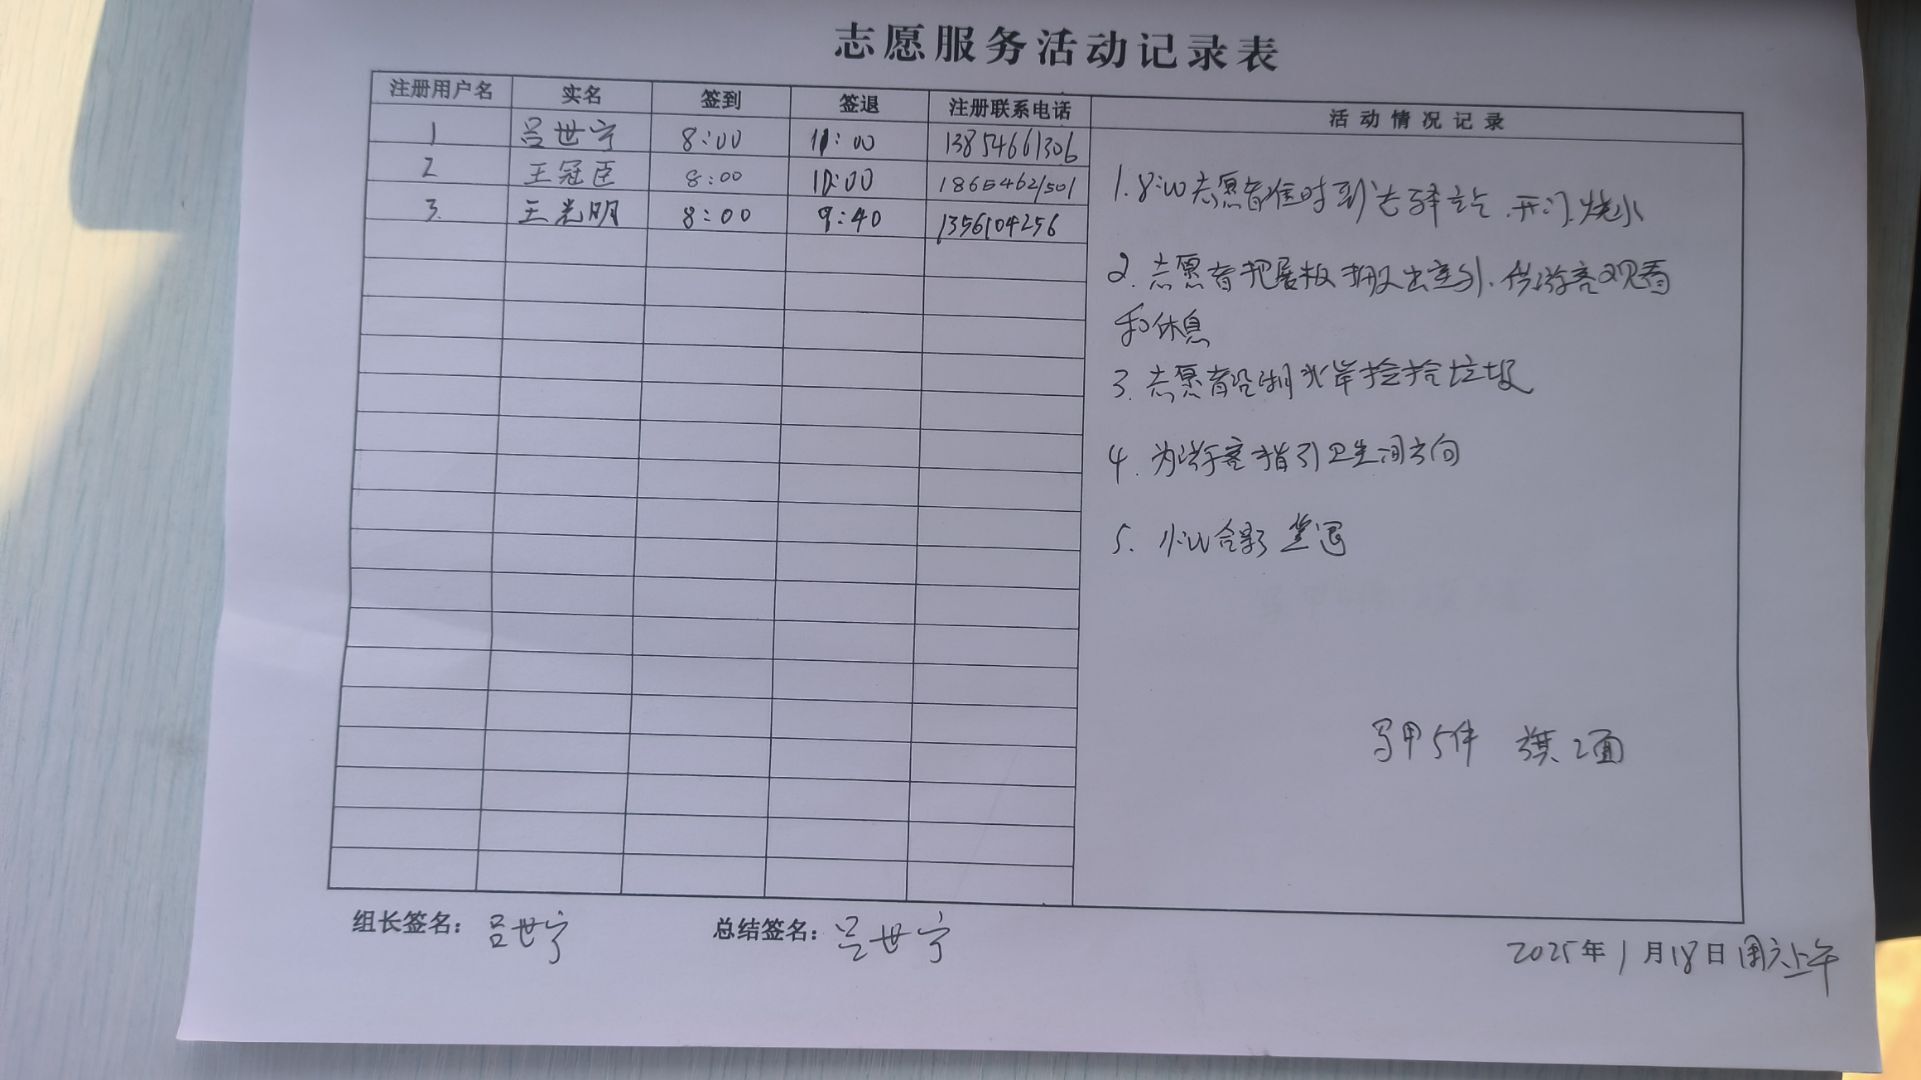 志愿服务活动记录表
注册用户名 实名 签到 签退 注册联系电话 活动情况记录
1 吕世宁 8:00 11:00 13854661306
2 王冠臣 8:00 10:00 18654621501
3. 王光明 8:00 9:40 1356104256
1. 8:00志愿者准时到达驿站.开门.烧水
2. 志愿者把展板搬出室外.供游客观看
和休息
3. 志愿者沿湖水岸捡拾垃圾
4. 为游客指引卫生间方向
5. 11:00合影 签退
马甲5件 旗2面
组长签名: 吕世宁 总结签名: 吕世宁
2025年1月18日周六上午